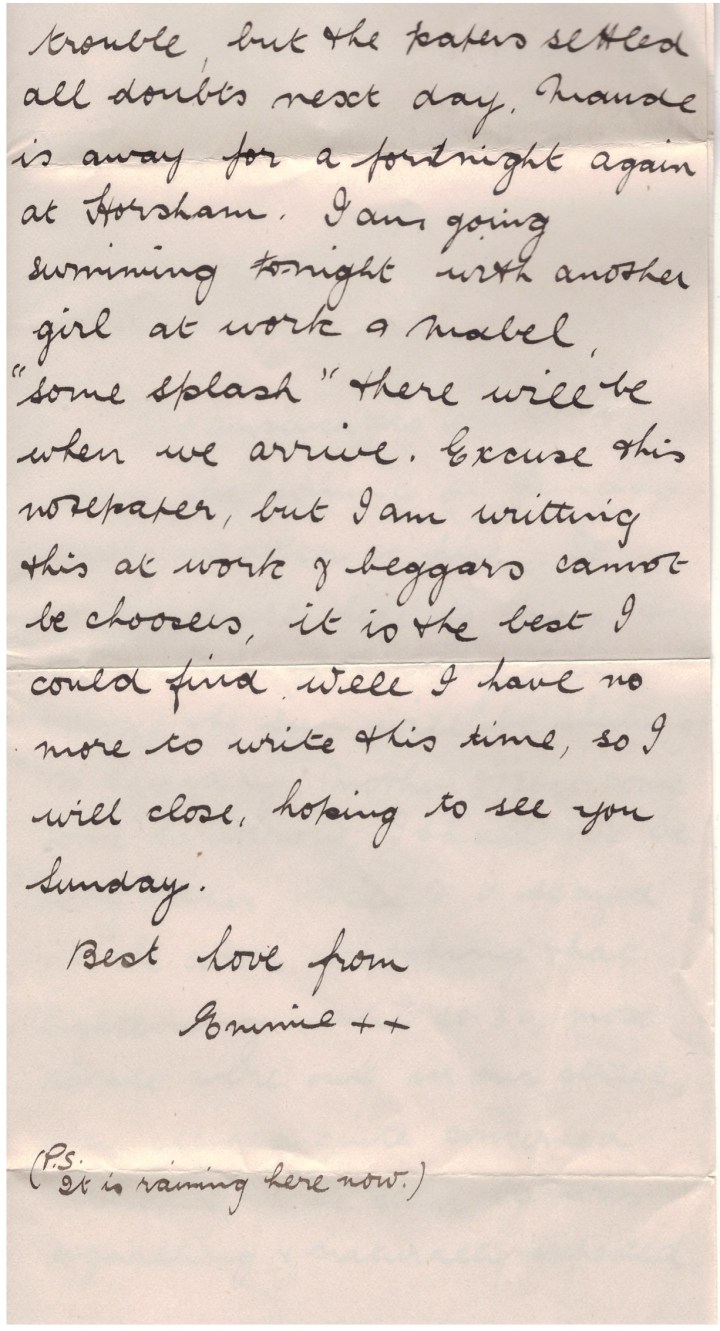 trouble, but the papers settled
all doubts next day. Maude
is away for a fortnight again
at Horsham. I am going
swimming tonight with another
girl at work & Mabel,
"some splash" there will be
when we arrive. Excuse this
notepaper, but I am writting
this at work & beggars cannot
be choosers, it is the best I
could find. Well I have no
more to write this time, so I
will close, hoping to see you
Sunday.
Best love from
Emmie ++
(P.S.
It is raining here now.)